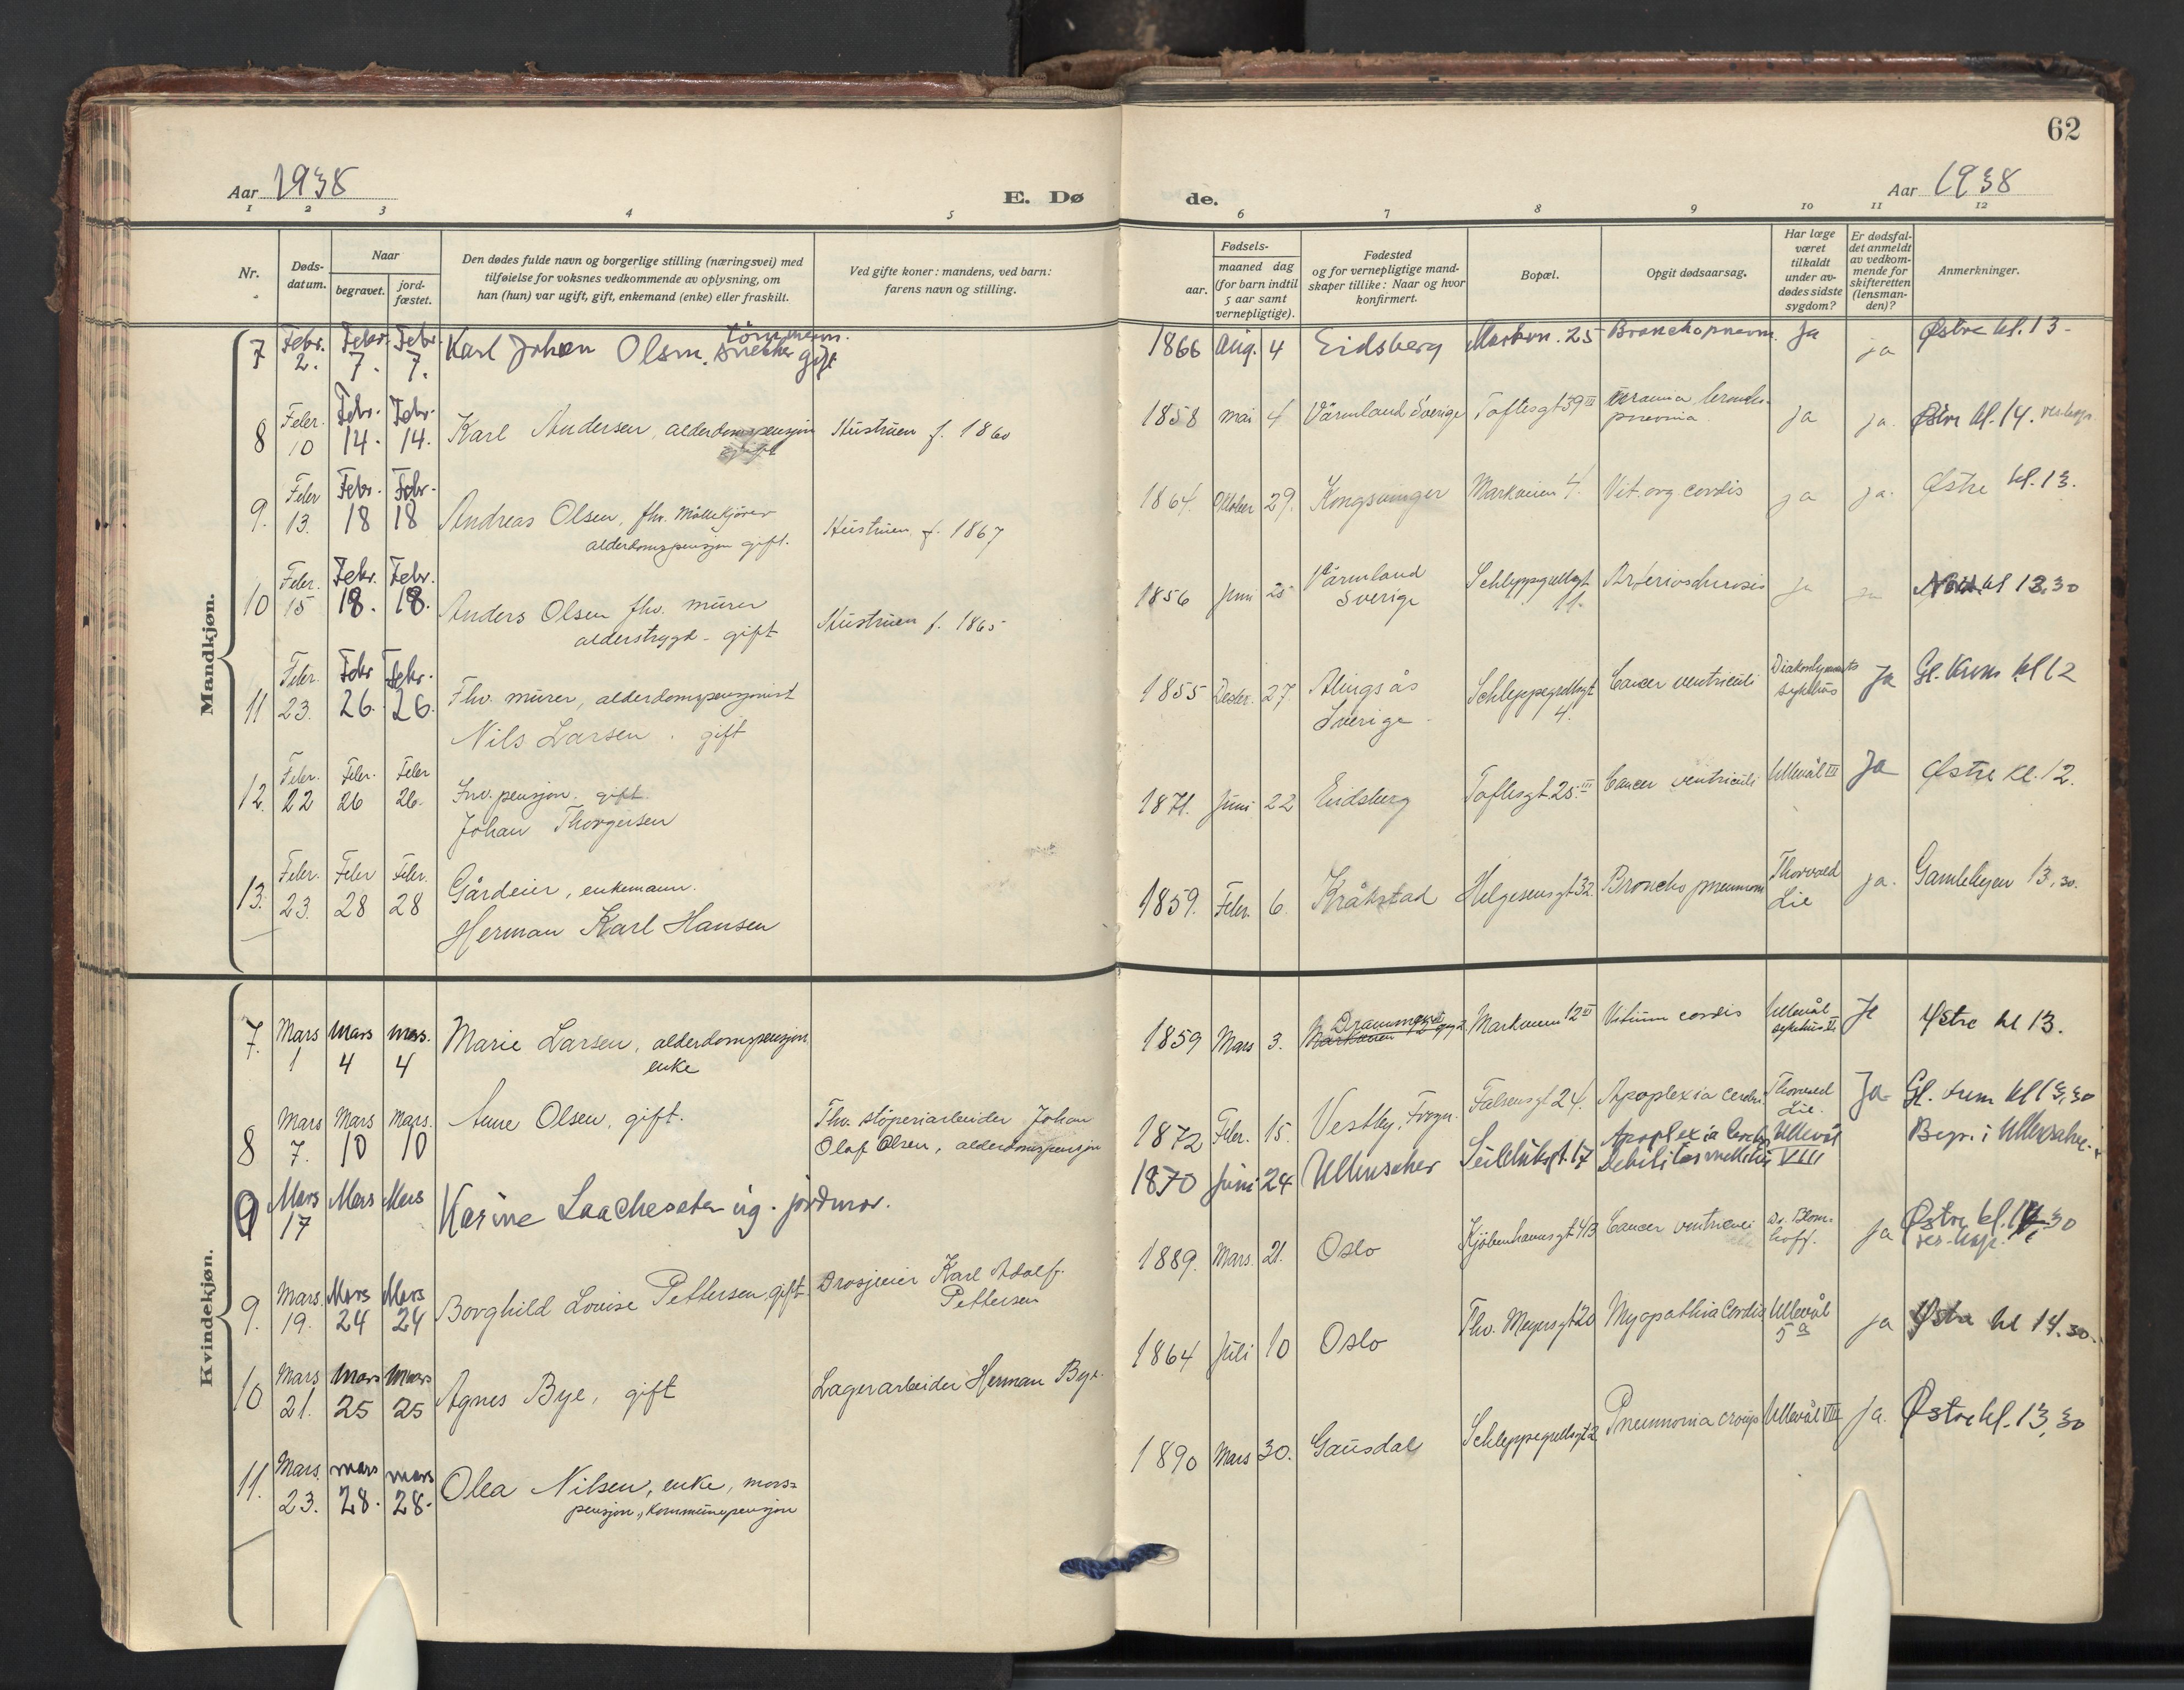 62
Aar 1938
E. Dø
de.
Aar 1938
1 2 3 4 5 6 7 8 9 10 11 12
Nr.
Døds-
datum.
Naar
begravet.
jord-
fæstet.
Den dødes fulde navn og borgerlige stilling (næringsvei) med
tilføielse for voksnes vedkommende av oplysning, om
han (hun) var ugift, gift, enkemand (enke) eller fraskilt.
Ved gifte koner: mandens, ved barn:
farens navn og stilling.
Fødsels-
aar.
maaned dag
(for barn indtil
5 aar samt
vernepligtige).
Fødested
og for vernepligtige mand-
skaper tillike: Naar og hvor
konfirmert.
Bopæl.
Opgit dødsaarsag.
Har læge
været
tilkaldt
under av-
dødes sidste
sygdom?
Er dødsfal-
det anmeldt
av vedkom-
mende for
skifteretten
(lensman-
den)?
Anmerkninger.
Mandkjøn.
7 Febr. 2. Febr. 7. Febr. 7. Karl Johan Olsen. snekker gift 1866 Aug. 4 Eidsberg Markvn. 25 Bronchopneum. Ja ja Østre kl. 13
8 Febr. 10 Febr. 14. Febr. 14. Karl Andersen, alderdomspensjon Hustruen f. 1860 1858 mai 4 Värmland Sverige Toftesgt 39 III Uraemia broncho-
pneumonia ja ja. Østre kl. 14.
9. Febr 13. Febr. 18 Febr. 18 Andreas Olsen, fhv. Møllekjører
alderdomspensjon gift. Hustruen f. 1867 1864. Oktober 29. Kongsvinger Markveien 4. Vit. org cordis ja ja. Østre kl. 13.
10 Febr. 15 Febr. 18. Febr. 18. Anders Olsen fhv. murer
alderstrygd - gift Hustruen f. 1865 1856 Juni 25 Värmland
Sverige Schleppegrellsgt
11. Arteriosclerosis ja kl 13,30
11 Febr. 23. Febr 26. Febr. 26. Fhv. murer, alderdomspensjonist
Nils Larsen. gift 1855 Desbr. 27. Alingsås
Sverige Schleppegrellsgt
4. Cancer ventriculi Diakonhjemmets
sykehus Ja Gl. Krem kl 12
12. Febr. 22 Febr. 26 Febr 26. Inv. pensjon. gift.
Johan Thorgersen 1871. Juni 22 Eidsberg Toftesgt 25. III Cancer ventriculi Ullevål III Ja Østre kl. 12.
13. Febr. 23. Febr 28 Febr. 28 Gårdeier, enkemann.
Herman Karl Hansen 1859. Febr. 6. Kråkstad Helgesensgt 32. Broncho pneumoni Thorvald
Lie ja. Gamlebyen 13,30.
Kvindekjøn.
7. Mars 1 Mars 4 Mars. 4 Marie Larsen, alderdomspensjon
enke 1859 Mars 3. Drammen Markveien 12 III Vitium cordis Ullevål
sykehus Ja Østre kl 13.
8 Mars 7. Mars 10 Mars. 10 Anne Olsen, gift. Fhv. støperiarbeider Johan
Olaf Olsen, alderdomspensjon 1872 Febr. 15. Vestby, Frogn. Falsensgt 24. Apoplexia cerebri Thorvald
Lie. Ja Gl. krem kl 13,30
9 Mars 17 Mars Mars Karine Laacheseter ug. jordmor. 1870 Juni 24 Ullensaker Seilduksgt. 17 Apoplexia cerebri
Debilitas mellitus Ullevål
VIII Begr. i Ullensaker.
9. Mars. 19. Mars 24 Mars 24 Borghild Lovise Pettersen, gift Drosjeeier Karl Adolf
Pettersen 1889. Mars. 21. Oslo Kjøbenhavnsgt 4B Cancer ventriculi Dr. Blom-
hoff. ja Østre kl.
10 Mars 21. Mars 25 Mars 25 Agnes Bye, gift Lagerarbeider Herman Bye. 1864 Juli 10 Oslo Thv. Meyersgt 20 Myopathia Cordis Ullevål
5 a ja Østre kl 14.30.
11. Mars. 23. Mars 28. Mars 28. Olea Nilsen, enke, mors-
pensjon, kommunepensjon 1890 Mars 30. Gausdal Schleppegrellsgt 2 Pneumonia croup Ullevål VIII Ja. Østre kl. 13,30